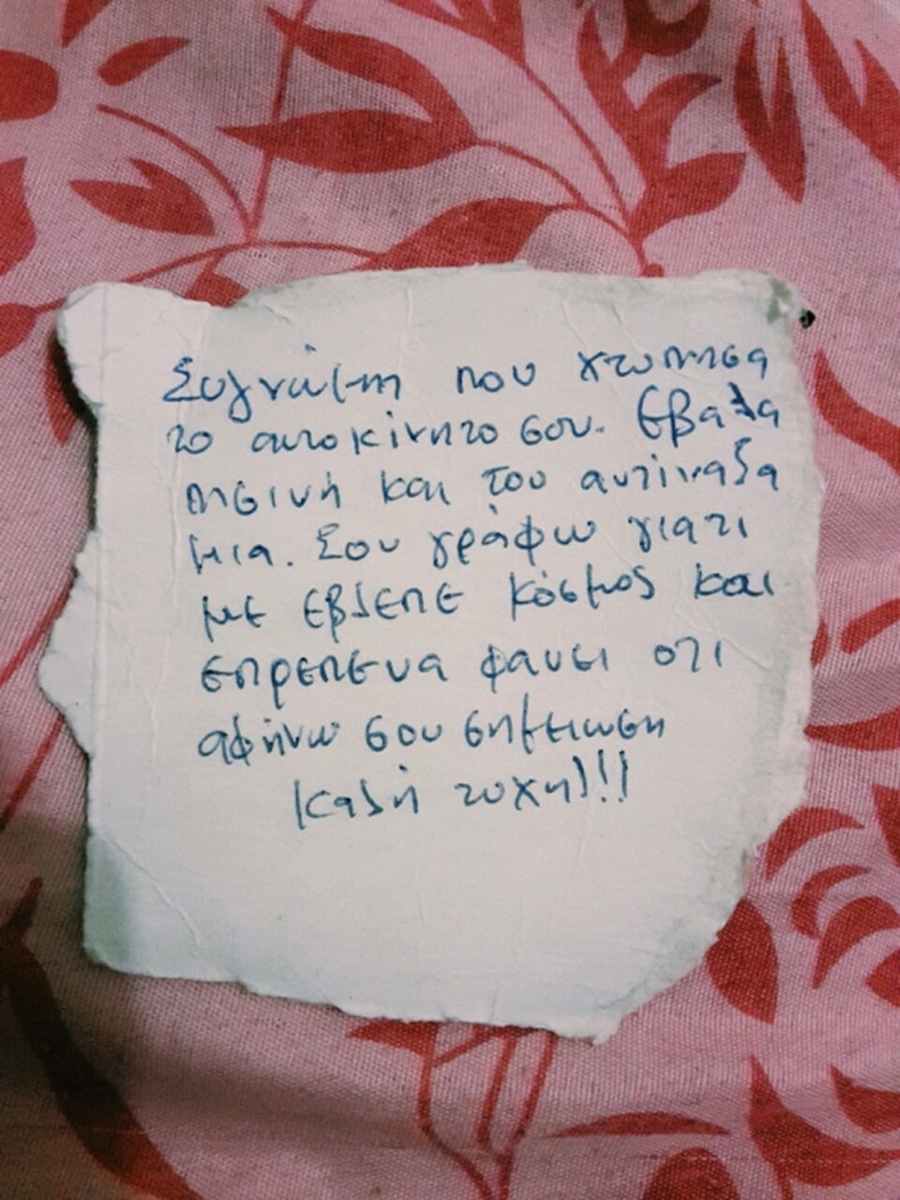 Συγνώμη που χτυπησα
το αυτοκίνητο σου. Εβαλα
πισινή και του αντίναξα
μια. Σου γράφω γιατι
με εβλεπε κόσμος και
επρεπε να φανει οτι
αφήνω σου σημειωση
Καλή τυχη!!!